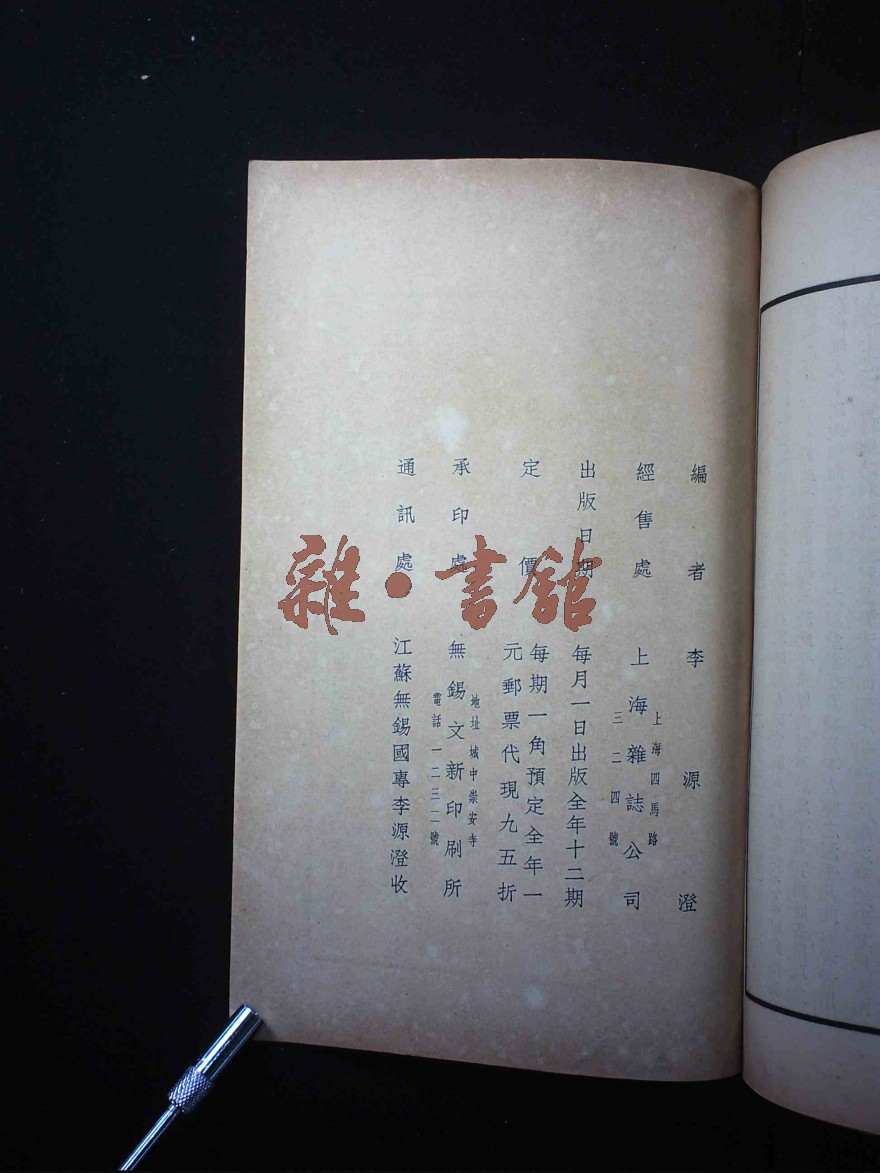 編者 李源澄
經售處 上海雜誌公司
上海四馬路
三二四號
出版日期 每月一日出版全年十二期
定價 每期一角預定全年一
元郵票代現九五折
承印處 無錫文新印刷所
地址城中崇安寺
電話一二三一號
通訊處 江蘇無錫國專李源澄收
雜·書館